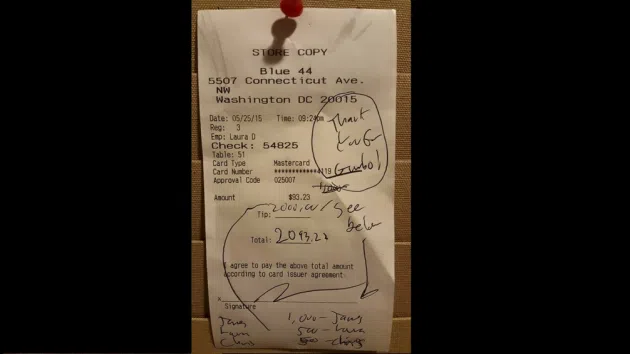 STORE COPY
Blue 44
5507 Connecticut Ave.
NW
Washington DC 20015
Date: 05/25/15 Time: 09:24pm
Reg: 3
Emp: Laura D
Check: 54825
Table: 51
Card Type Mastercard
Card Number ************4119
Approval Code 025007
Thank
You for
Gumbo!
Amount $93.23
Tip: 2000.00 / See
below
Total: 2093.23
I agree to pay the above total amount
according to card issuer agreement.
x
Signature
1,000 - Jamy
500 - Laura
500 - Chris